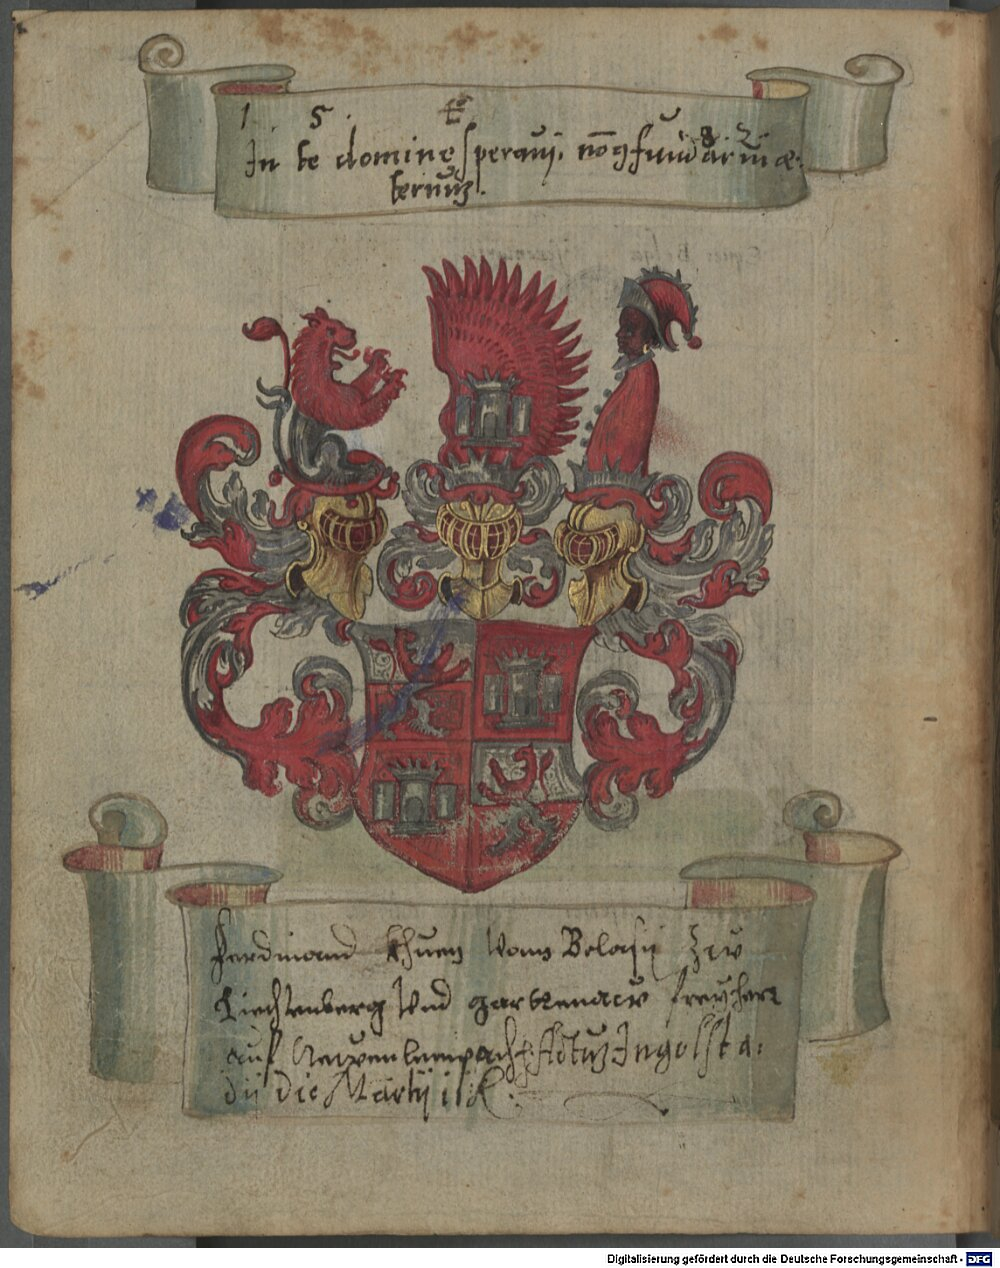 1 5 . 8 2
In te domine speraui, nō 9fundar in æ-
ternum.
Ferdinand Khuen Vom Belasy Zw
Liechtenberg Vnd gartenaw freyherr
auf Newenlempach Actum Ingolsta-
dij die Martij
Digitalisierung gefördert durch die Deutsche Forschungsgemeinschaft - DFG